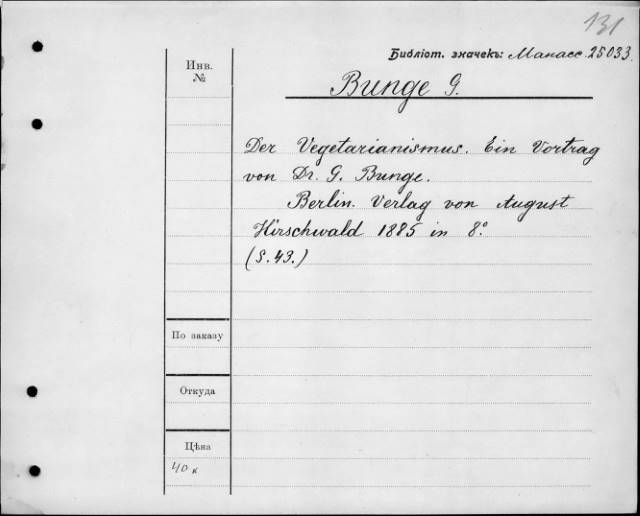 131
Библіот. значекъ: Манасс. 25033.
Инв.
№
Bunge G.
Der Vegetarianismus. Ein Vortrag
von Dr. G. Bunge.
Berlin. Verlag von August
Hirschwald 1885 in 8º
(S. 43.)
По заказу
Откуда
Цѣна
40 к